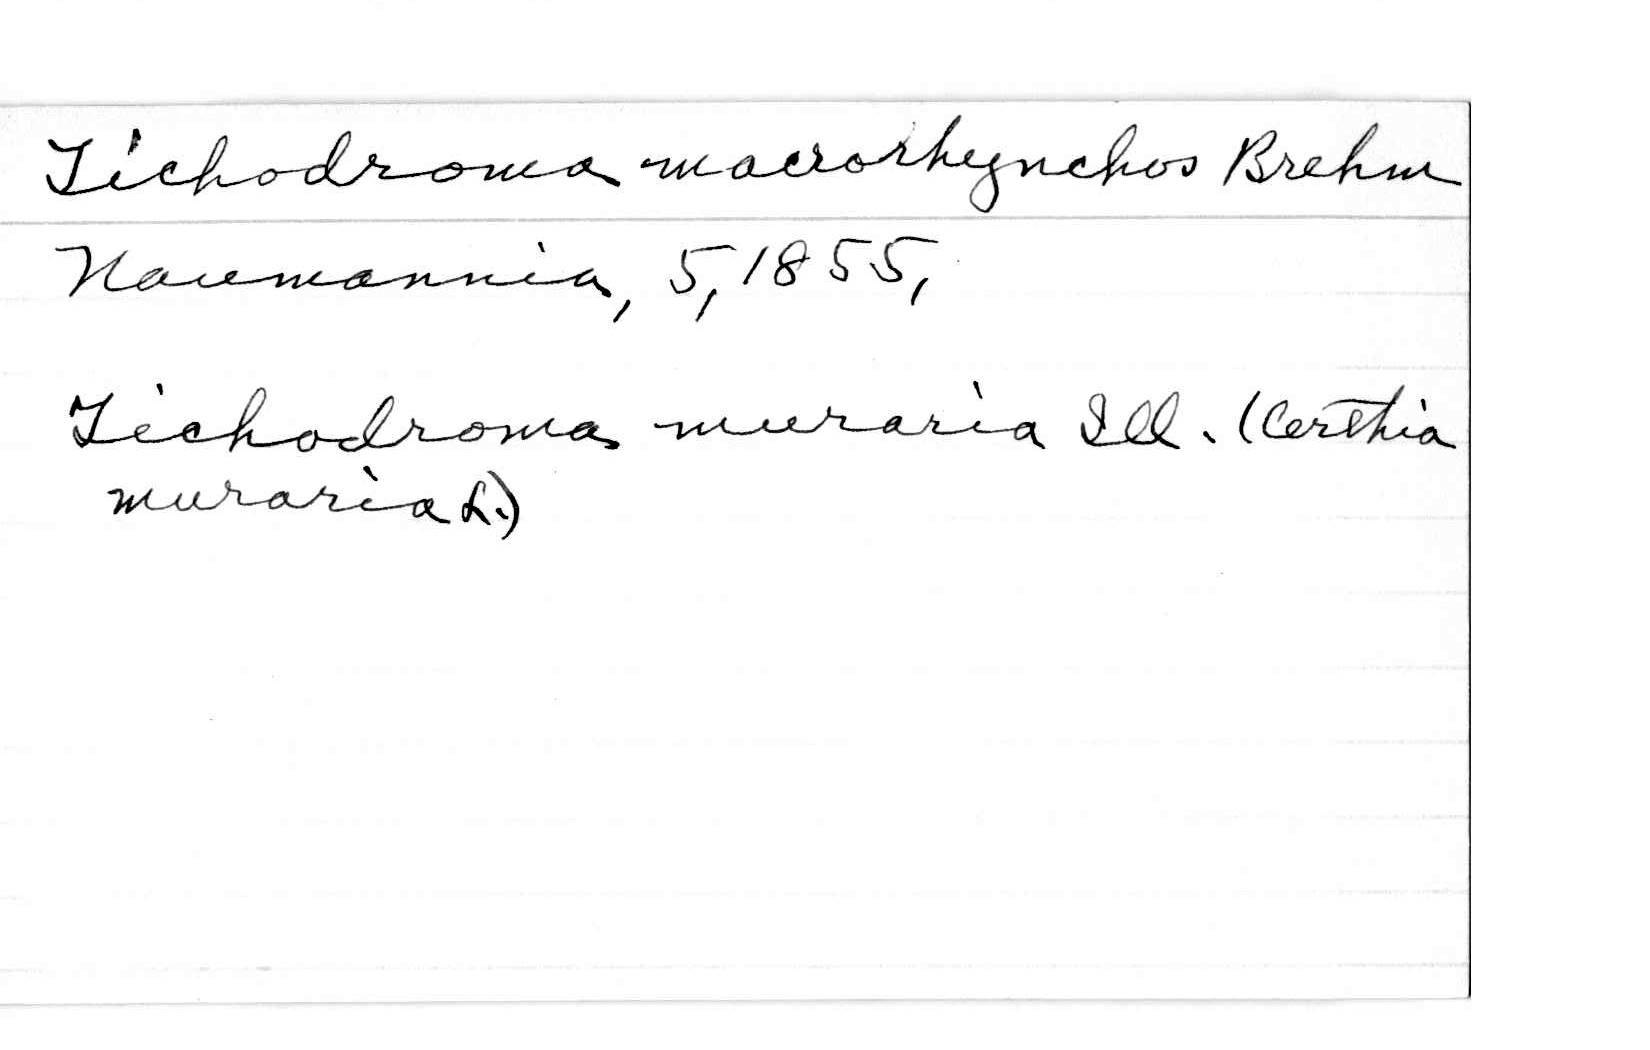 Tichodroma macrorhynchos Brehm
Naumannia, 5, 1855,
Tichodroma muraria Ill. (Certhia
muraria L.)